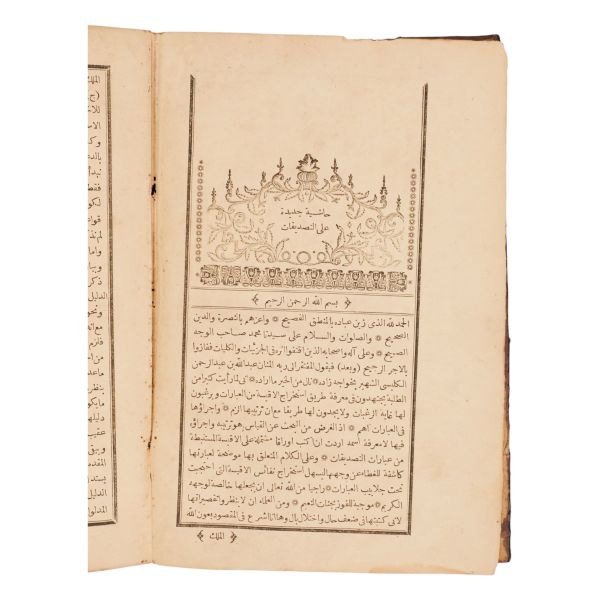 حاشية جديدة
على التصديقات
بسم الله الرحمن الرحيم
الحمد لله الذى زين عباده بالمنطق الفصيح * واعزهم بالنصرة والدين
الصحيح * والصلوات والسلام على سيدنا محمد صاحب الوجه
الصبيح * وعلى آله واصحابه الذين اقتفوا اثره فى الجزئيات والكليات ففازوا
بالاجر الرجيح (وبعد) فيقول المفتقر الى ربه المنان عبد الله بن عبد الرحمن
الكليسى الشهير بخواجه زاده * نال من الخير ما اراده * انى لما رأيت كثيرا من
الطلبة يجتهدون فى معرفة طريق استخراج الاقيسة من العبارات ويرغبون
لها نهاية الرغبات ولا يجدون لها طريقا مع ان ترتيبها الزم * واجراؤها
فى العبارات اهم * اذ الغرض من البحث عن القياس هو ترتيبه واجراؤه
فيها لا معرفة اسمه اردت ان اكتب اوراقا مشتملة على الاقيسة المستنبطة
من عبارات التصديقات * وعلى الكلام المتعلق بها موضحة لعبارتها
كاشفة للغطاء عن وجهها ليسهل استخراج نفائس الاقيسة التى احتجبت
تحت جلابيب العبارات * راجيا من الله تعالى ان يجعلها خالصة لوجهه
الكريم * موجبة للفوز بجنات النعيم * ومن العلماء ان لا ينظروا تقصيراتها
لانى كتبتها فى ضعف حال واختلال بال وها انا اشرع فى المقصود بعون الله
الملك